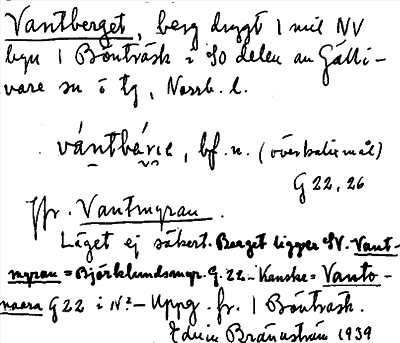 Vantberget, berg drygt 1 mil NV
byn / Bönträsk i SO delen av Gälli-
vare sn o tg, Norrb. l.
vántbǽrıe, bf. n. (överkalixmål)
G 22, 26
Jfr. Vantmyran.
Läget ej säkert. Berget ligger SV. Vant-
myran = Björklundsmyr. G. 22 - Kanske = Vanto-
vaara G 22 i N? - Uppg. fr. / Bönträsk.
Edvin Brännström 1939